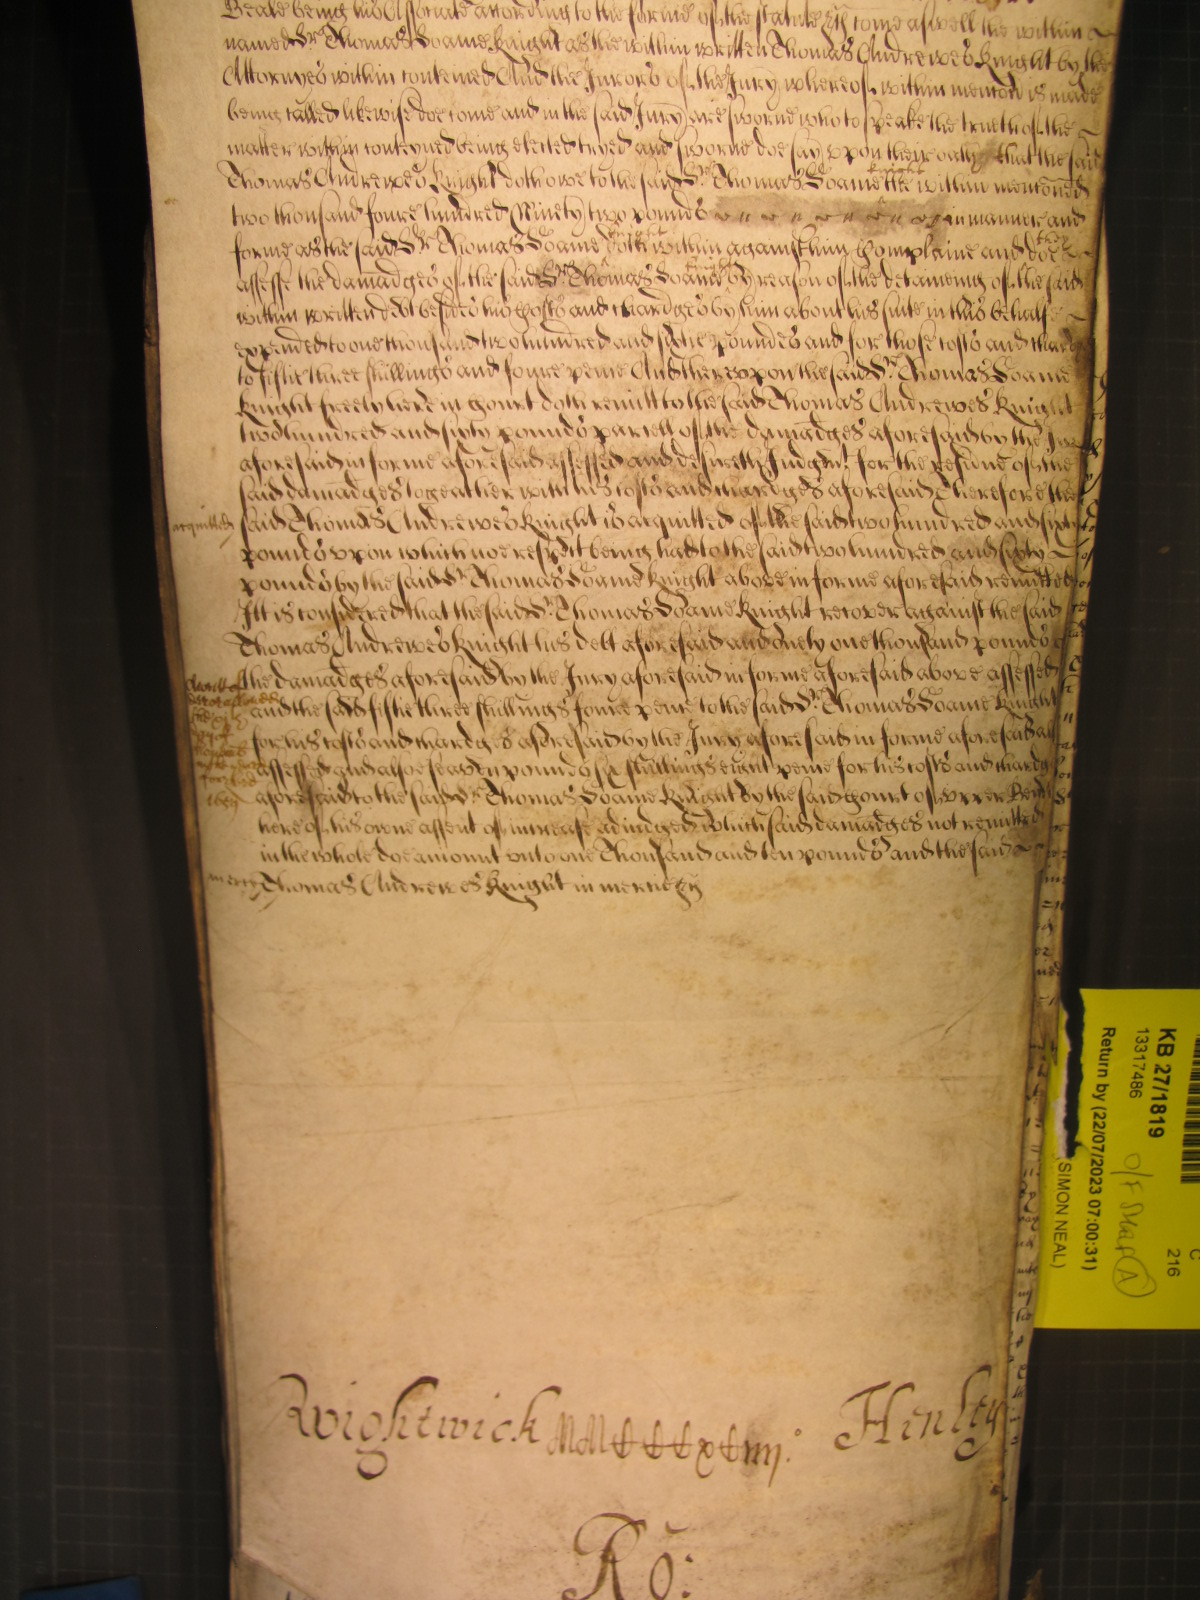 Beale being his Associate according to the forme of the statute &c come aswell the within
named Sr Thomas Soame Knight as the within written Thomas Andrewes Knight by the
Attornyes within conteined And the Jurors of the Jury whereof within mencon is made
being called likewise doe come and in the said Jury are sworne who to speake the trueth of the
matter within conteyned being elected tryed and sworne doe say upon their oath that the said
Thomas Andrewes Knight doth owe to the said Sr Thomas Soame knight the within mentoned
two thousand foure hundred Ninety two pounds in manner and
forme as the said Sr Thomas Soame knight doth within against him Complaine and they doe
assesse the damadges of the said Sr Thomas Soame knight by reason of the detaineing of the said
within written debt besides his Costs and chardges by him about his suite in this behalfe
expended to one thousand two hundred and sixtie poundes and for those costs and chardges
to fiftie three shillings and foure pence And thereupon the said Sr Thomas Soame
Knight freely here in Court doth remitt to the said Thomas Andrewes Knight
two hundred and sixty pounds parcell of the damadges aforesaid by the Jury
aforesaid in forme aforesaid assessed and desireth Judgmt for the residue of the
said damadges togeather with his costs and chardges aforesaid Therefore the
acquitted
said Thomas Andrewes Knight is acquitted of the said two hundred and sixty
pounds upon which noe respect being had to the said two hundred and sixty
pounds by the said Sr Thomas Soame Knight above in forme aforesaid remitted
Itt is considered that the said Sr Thomas Soame Knight recover against the said
Thomas Andrewes Knight his debt aforesaid and onely one thousand pounds of
the damadges aforesaid by the Jury aforesaid in forme aforesaid above assessed
and the said fiftie three shillings foure pence to the said Sr Thomas Soame Knight
for his costs and chardges aforesaid by the Jury aforesaid in forme aforesaid
assessed and alsoe seaven pounds six shillings eight pence for his costs and chardges
aforesaid to the said Sr Thomas Soame Knight by the said Court of upper Bench
here of his owne assent of increase adiudged which said damadges not remitted
in the whole doe amount unto one Thousand and ten pounds and the said
mercy
Thomas Andrewes Knight in mercie &c
Rwightwick MMCCCxCiiij. Henley
Ro:
KB 27/1819
13317486
C
216
Return by (22/07/2023 07:00:31)
SIMON NEAL)
A